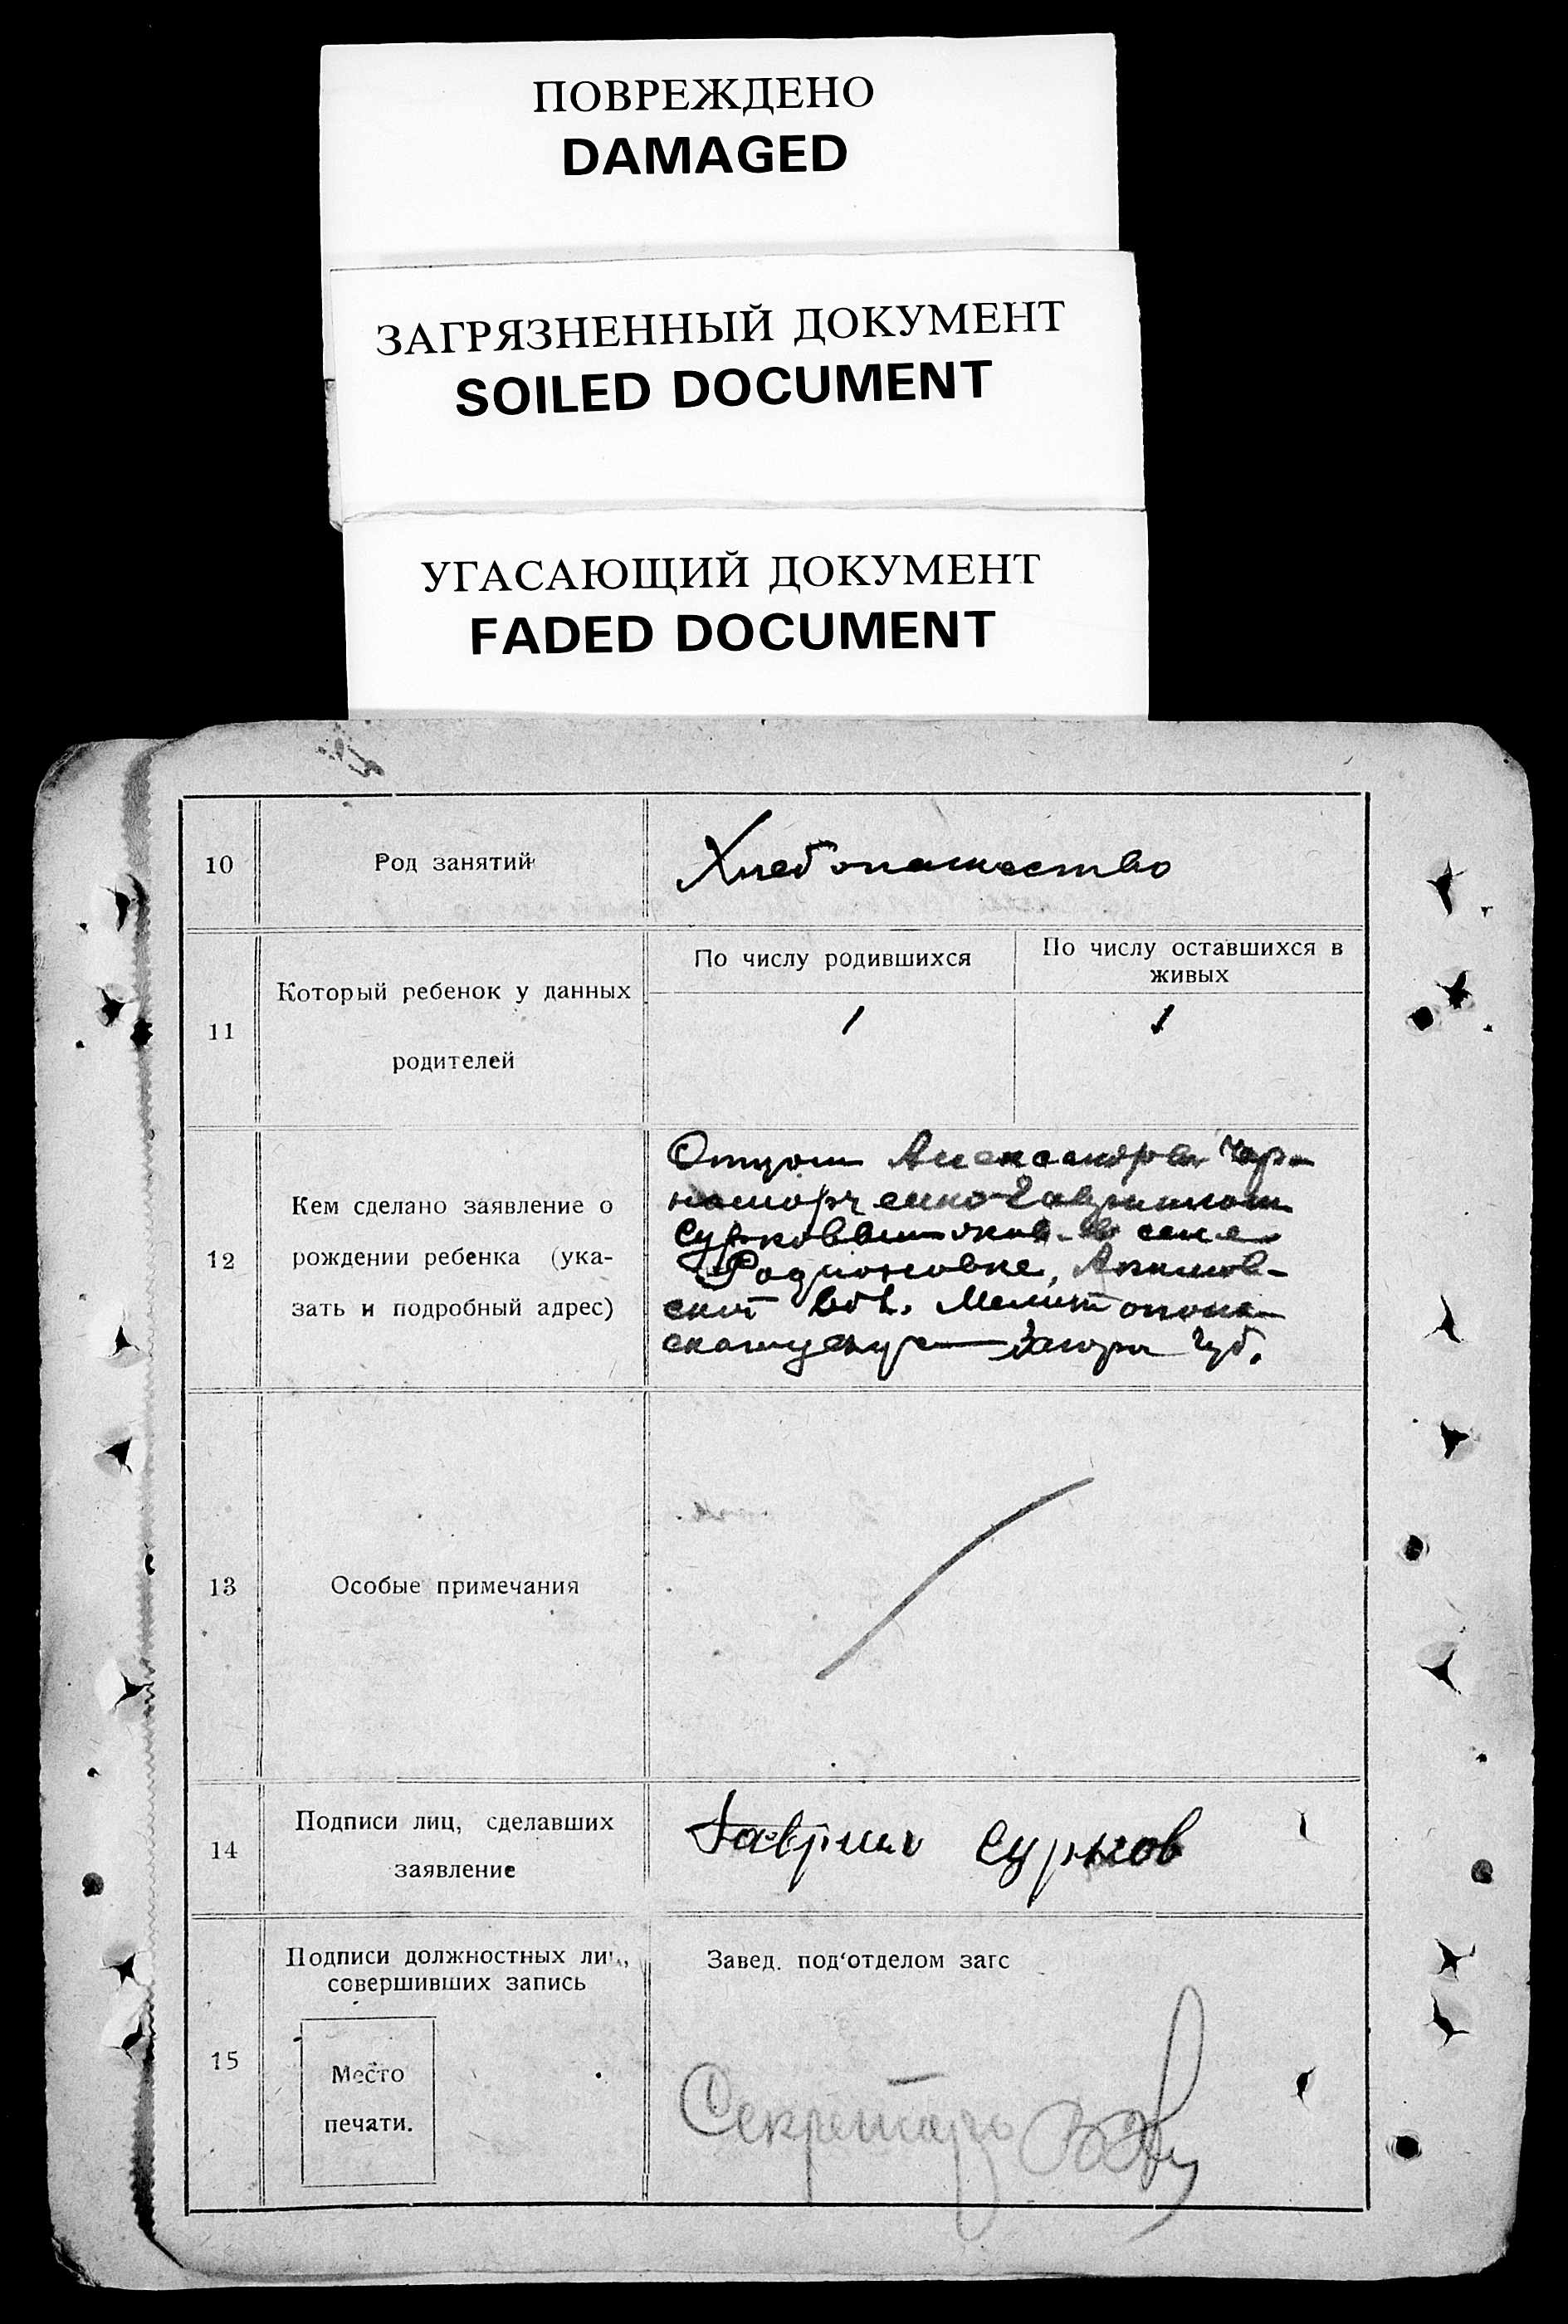 ПОВРЕЖДЕНО
DAMAGED
ЗАГРЯЗНЕННЫЙ ДОКУМЕНТ
SOILED DOCUMENT
УГАСАЮЩИЙ ДОКУМЕНТ
FADED DOCUMENT
10 Род занятий Хлебопашество
11 Который ребенок у данных родителей
По числу родившихся
По числу оставшихся в живых
1 1
12 Кем сделано заявление о рождении ребенка (указать и подробный адрес)
Отцом
Гавриилом
Сурковым в селе
Родионовке, Акимов-
ской вол. Мелитополь-
Губ.
13 Особые примечания
14 Подписи лиц, сделавших заявление
Гавриил Сурков
15 Подписи должностных лиц, совершивших запись
Место печати.
Завед. под'отделом загс
Секретарь